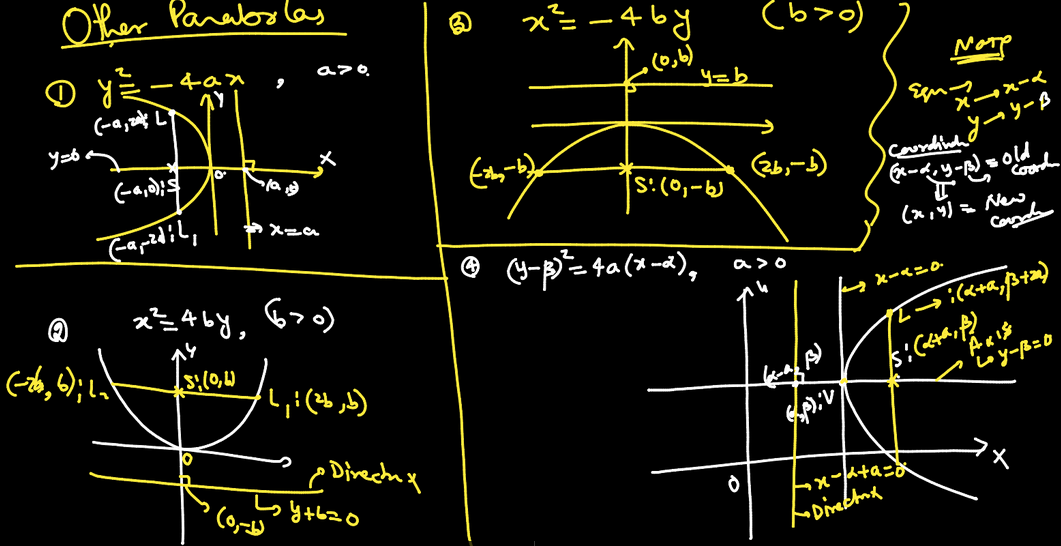 Other Parabolas
① y² = -4ax, a>0.
Y
(-a,2a);L
y=0
X
(-a,0):S
O
(a,0)
(-a,-2a);L₁
→ x=a
② x²=4by, (b>0)
y
(-2b, b);L₂
S:(0,b)
L₁:(2b,b)
O
→ Directrix
(0,-b)
y+b=0
③ x² = -4by (b>0)
(0,b)
y=b
(-2b,-b)
(2b,-b)
S:(0,-b)
Note
Eqn → x → x-α
y → y-β
Coordinate
(x-α, y-β) = Old Coordn
⇓
(x,y) = New Coordn
④ (y-β)²=4a(x-α), a>0
y
→ x-α=0.
L → :(α+a, β+2a)
S:(α+a, β)
Axis
↳ y-β=0
(α-a, β)
(α,β):V
X
O
→ x-α+a=0
→ Directrix